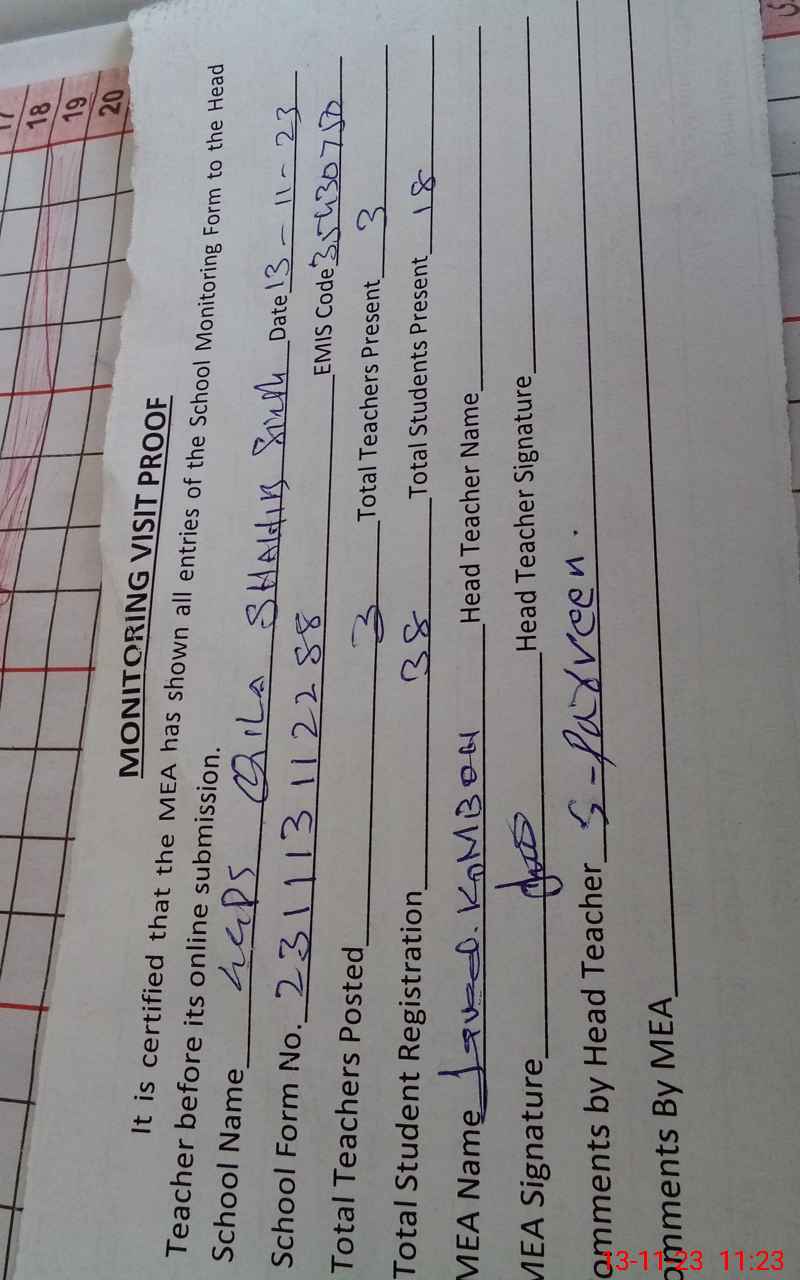 17
18
19
20
MONITORING VISIT PROOF
It is certified that the MEA has shown all entries of the School Monitoring Form to the Head
Teacher before its online submission.
School Name GGPS SHAHIR Date 13-11-23
School Form No. 231113112288 EMIS Code 35430750
Total Teachers Posted 3 Total Teachers Present 3
Total Student Registration 38 Total Students Present 18
MEA Name Javed. KAMBOH Head Teacher Name
MEA Signature Head Teacher Signature
omments by Head Teacher S-Parveen.
omments By MEA
13-11-23 11:23